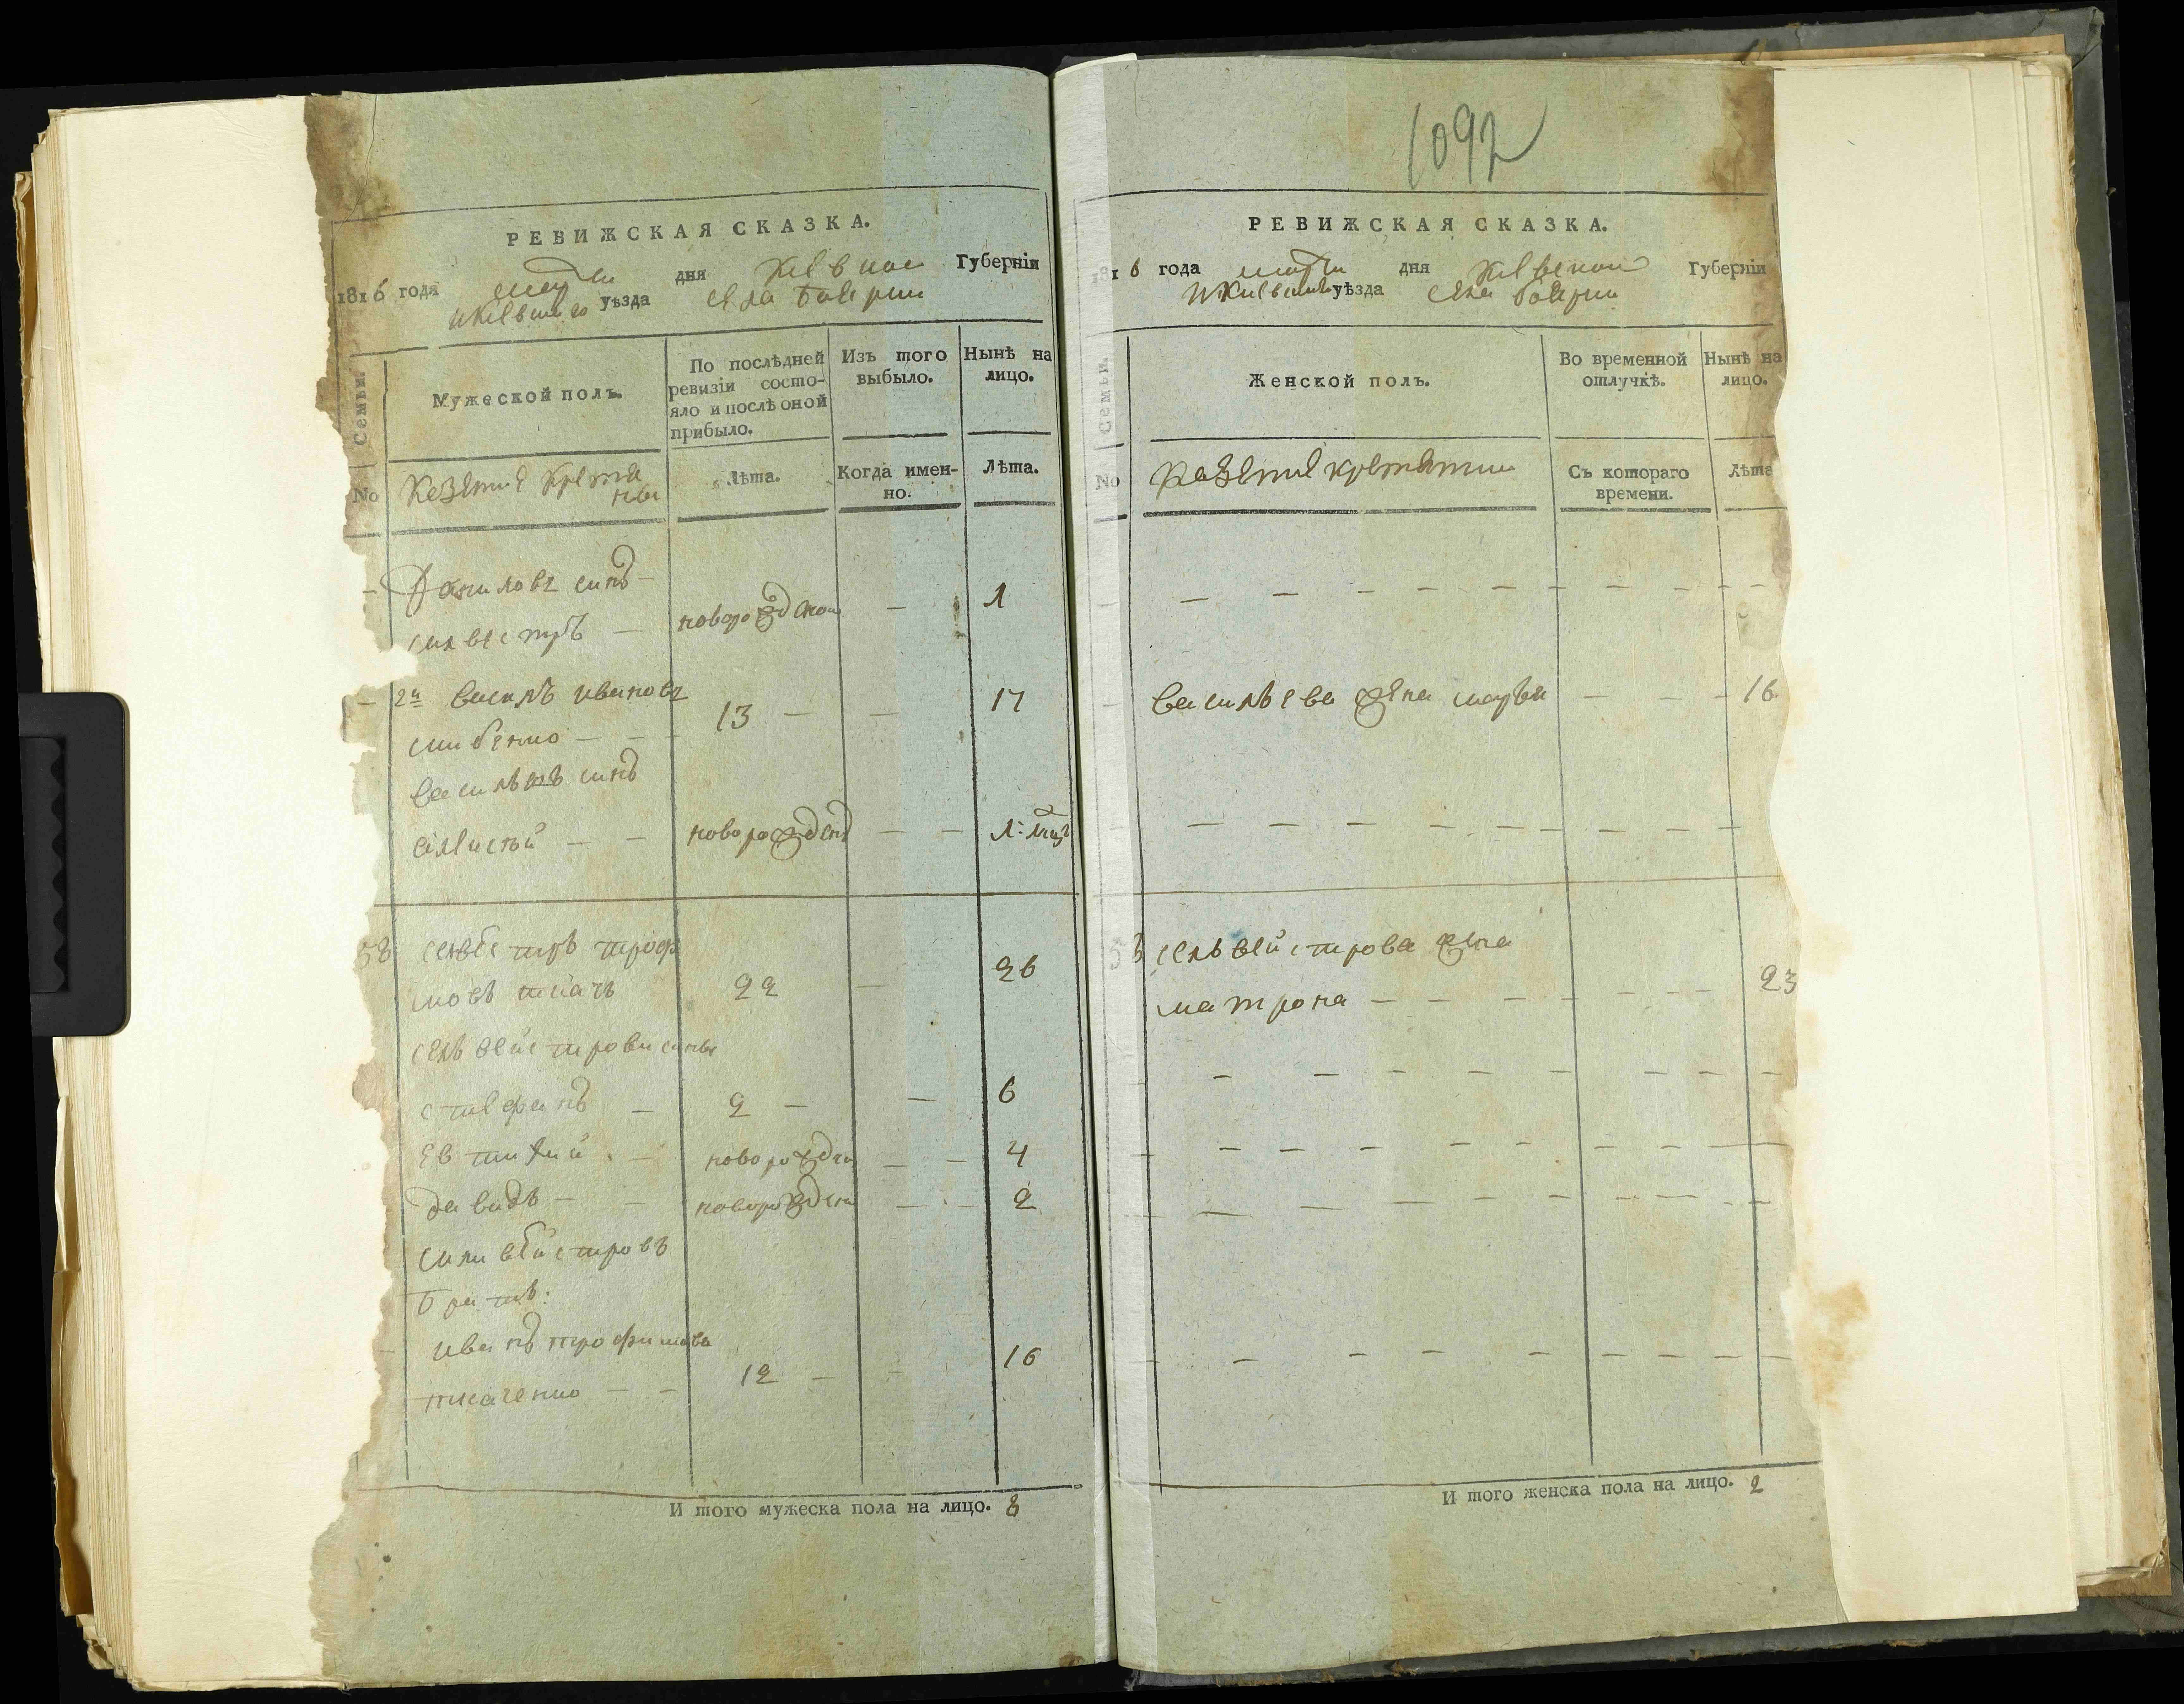 1092
РЕВИЖСКАЯ СКАЗКА.
1816 года марта дня Киевской Губерніи
и Киевского уѣзда села Боярки
Семьи.
Мужеской полъ.
По послѣдней ревизіи состояло и послѣ оной прибыло.
Изъ того выбыло.
Нынѣ на лицо.
No
Казенние крестяне
Лѣта.
Когда именно.
Лѣта.
Даниловъ синъ
силвестръ новорожденой 1
2й василь ивановъ
13 17
василѣвъ синъ
новорожденъ 1: мцъ
58 селвестръ трофи
мовъ ткачъ 22 26
селвейстрови сини
стефанъ 2 6
евтихий новорожден 4
давидъ новорожден 2
силивейстровъ
братъ:
иванъ трофимовъ
ткаченко 12 16
И того мужеска пола на лицо. 8
РЕВИЖСКАЯ СКАЗКА.
1816 года марта дня Киевской Губерніи
и Киевского уѣзда села Боярки
Семьи.
Женской полъ.
Во временной отлучкѣ.
Нынѣ на лицо.
No
Казенние крестянки
Съ котораго времени.
Лѣта
василѣева жена марья 16
58 селвейстрова жена
матрона 23
И того женска пола на лицо. 2